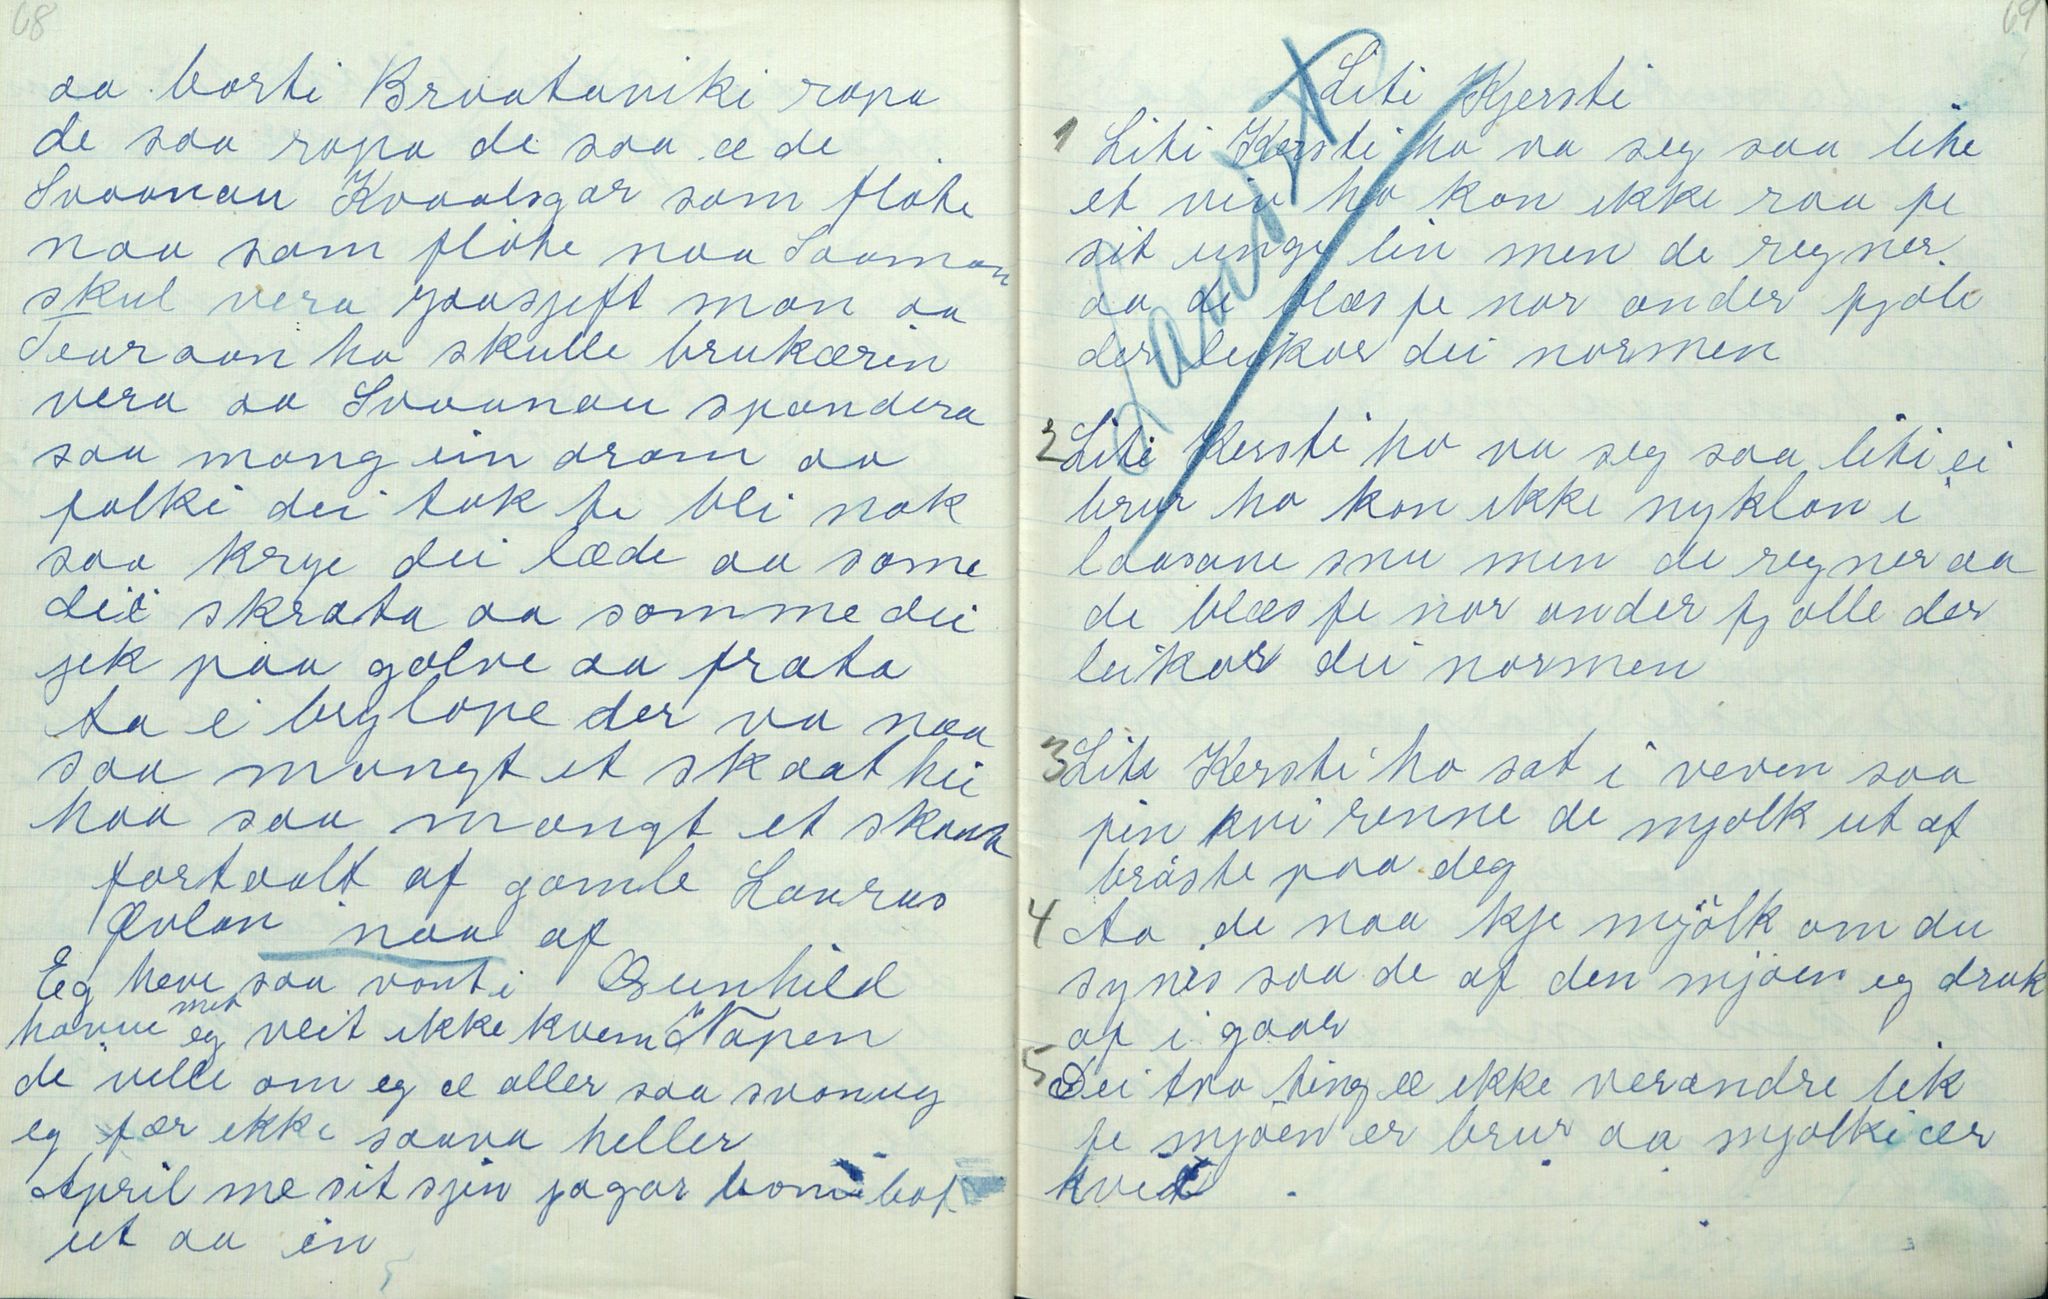 68
aa borti Braataniki ropa
de saa ropa de saa æ de
Svaanau Kvaalsgar som fløte
naa som fløte naa Saaman
skul vera gaasjeft man aa
ho skulle brukærin
vera aa Svaanau spandera
saa mang ein dram aa
folki dei tok te bli nok
saa krye dei læde aa some
dei skrata aa somme dei
jek paa golve aa prata
ta i bryløpe der va naa
saa mangt et skaat hei
haa saa mangt et skaat
fortaalt af gamle Lavrus
Øvlan naa af
Eg heve saa vont i Gunhild
havue men eg veit ikke kvem Napen
de velle om eg æ aller saa svonug
eg fær ikke saava heller
April me sit sjin jagar bom
ut aa in
69
Liti Kjersti
Landst
1 Liti Kersti ho va seg saa lite
et viv ho kan ikke raa fe
sit unge liv men de regner
aa de blæs fe nor onder fjøle
der leikar dei normen
2 Liti Kersti ho va seg saa liti ei
brur ho kan ikke nyklan i
laasane snu men de regner aa
de blæs fe nor onder fjølle der
leikar dei normen
3 Liti Kersti ho sat i veven saa
pin kvi renne de mjølk ut af
brøste paa deg
4 Aa de naa kje mjølk om du
synes saa de af den mjøen eg drak
af i gaar
5 Dei tvo ting æ ikke verandre lik
fe mjøen er brur aa mjølki ær
kvit